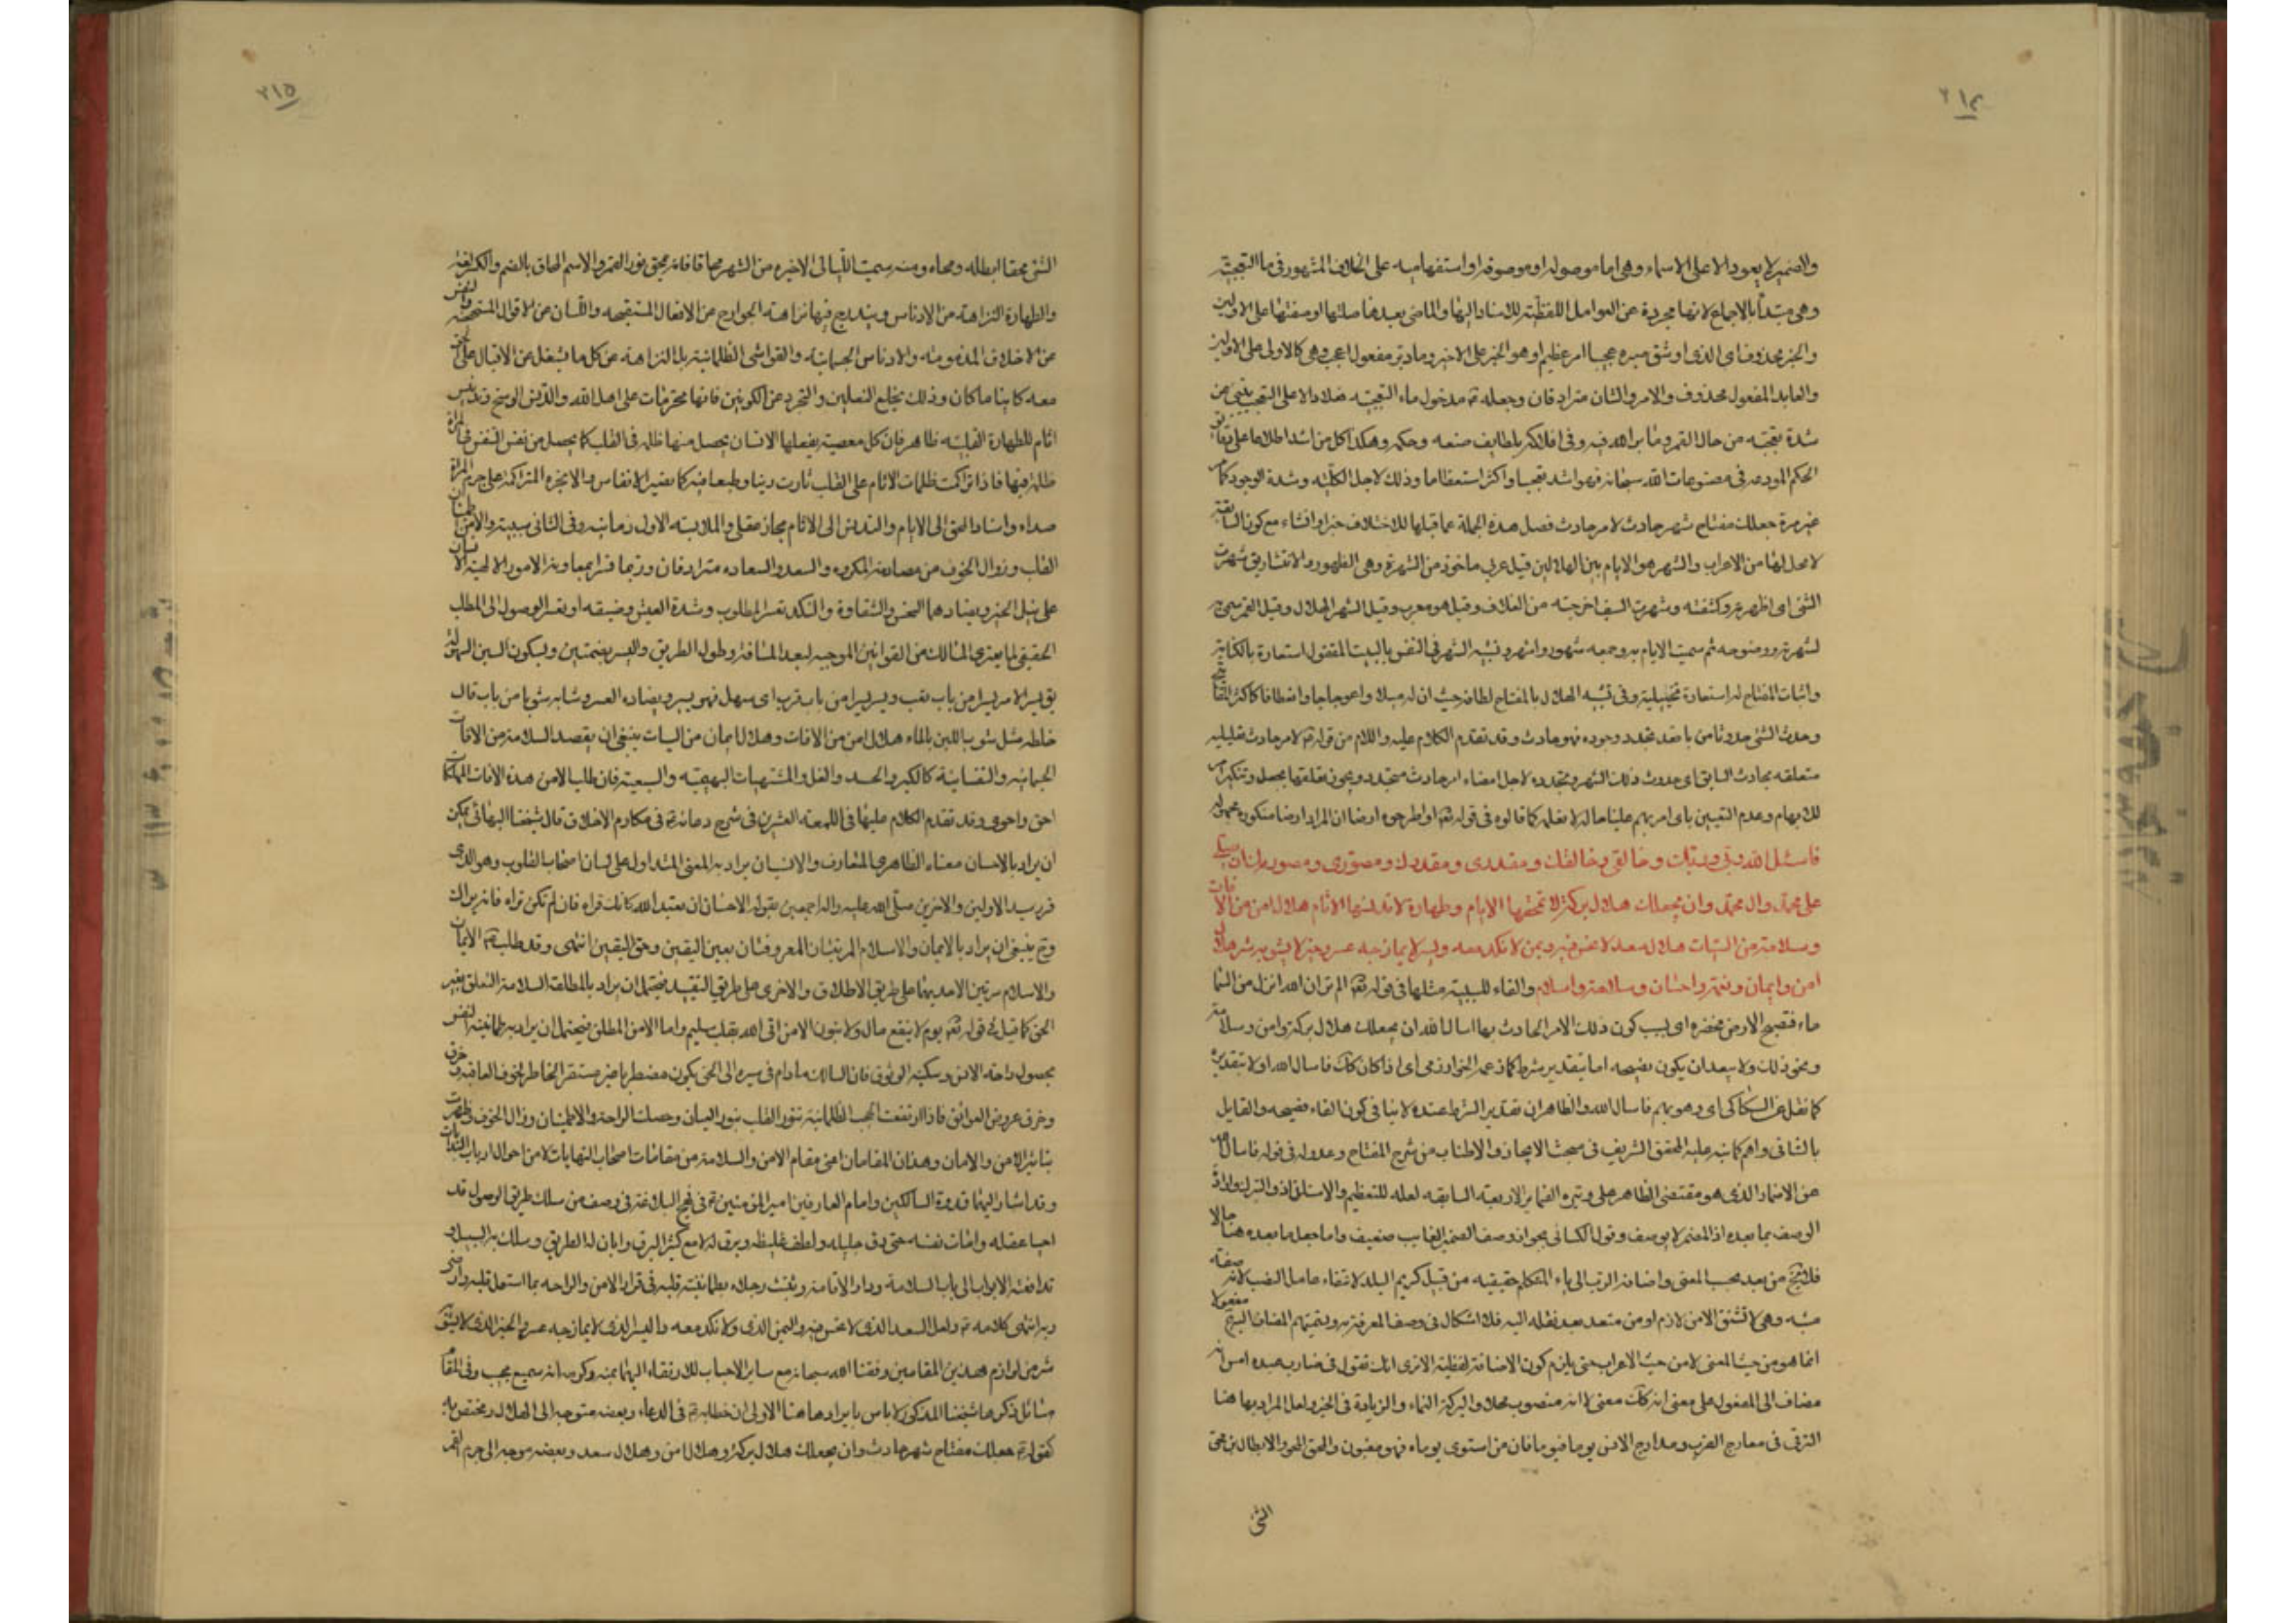 ٢١٤
والضمير لا يعود الا على الاسماء وهى اما موصولة او موصوفة او استفهامية على الخلاف المشهور فى ما التعجبية
وهى مبتدأ بالاجماع لانها مجردة عن العوامل اللفظية للاسناد اليها والماضى بعدها صلتها او صفتها على الاولين
والخبر محذوف اى الذى او شئ صيره عجيبا امر عظيم او هو الخبر على الاخير وما دبر مفعول اعجب وهى كالاولى على الاولين
والعايد المفعول محذوف والامر والشان مترادفان وجعله ع مدخول ماء التعجبية دالا على التعجب ينبئ عن
شدة تعجبه من حال القمر وما دبر الله فيه وفى افلاكه بلطايف صنعه وحكمه وهكذا كل من اشد اطلاعا على دقايق
الحكم المودعة فى مصنوعات الله سبحانه فهو اشد تعجبا واكثر استعظاما وذلك لاجل الكلية وشدة الوجود كما مر
غير مرة جعلك مفتاح شهر حادث لامر حادث فصل هذه الجملة عما قبلها للاختلاف خبرا وانشاء مع كون السابقة
لا محل لها من الاعراب والشهر هو الايام بين الهلالين قيل عربى ماخوذ من الشهرة وهى الظهور والانتشار يق شهرت
الشئ اى اظهرته وكشفته وشهرت السيف اخرجته من الغلاف وقيل هو معرب وقيل الشهر الهلال وقيل القمر سمى به
لشهرته ووضوحه ثم سميت الايام به وجمعه شهور واشهر وتشبيه الشهر فى النفس بالبيت المقفول استعارة بالكناية
واثبات المفتاح له استعارة تخييلية وفى تشبيه الهلال بالمفتاح لطافة حيث ان له ميلا واعوجاجا وانعطافا كاكثر المفاتيح
وحدث الشئ حدوثا من باب قعد تجدد وجوده فهو حادث وقد تقدم الكلام عليه واللام من قوله ع لامر حادث تعليلية
متعلقه بحادث السابق اى حدوث ذلك الشهر وتجدده لاجل امضاء امر حادث متجدد ويجوز تعلقها بجعل وتنكير امر
للابهام وعدم التعيين باى امر مبهم علينا حاله لا نعلمه كما قالوه فى قوله تع او اطرحوه ارضا ان المراد ارضا منكورة مجهولة
فاسئل الله ربى وربك وخالقى وخالقك ومقدرى ومقدرك ومصورى ومصورك ان يصلى
على محمد وال محمد وان يجعلك هلال بركة لا تمحقها الايام وطهارة لا تدنسها الاثام هلال امن من الافات
وسلامة من السيئات هلال سعد لا نحس فيه ويمن لا نكد معه ويسر لا يمازجه عسر وخير لا يشوبه شر هلال
امن وايمان ونعمة واحسان وسلامة واسلام والفاء للسببية مثلها فى قوله تع الم تر ان الله انزل من السماء
ماء فتصبح الارض مخضرة اى بسبب كون ذلك الامر الحادث بها اسال الله ان يجعلك هلال بركة وامن وسلامة
ونحو ذلك ولا يبعد ان يكون فصيحه اما بتقدير شرط كما زعمه الخوارزمى اى اذا كان كك فاسال الله اولا بتقديره
كما نقل عن السكاكى اى وهو مبهم فاسال الله والظاهر ان تقدير الشرط عنده لا ينافى كون الفاء فصيحه والقايل
بالثانى واهم كما نبه عليه المحقق الشريف فى مبحث الايجاز والاطناب من شرح المفتاح وعدوله فى قوله فاسال الله
عن الاضمار الذى هو مقتضى الظاهر على وتيرة الضماير الاربعة السابقه لعله للتعظيم والاستلذاذ والتبرك وارادة
الوصف بما بعده اذ المضمر لا يوصف وقول الكسائى بجواز وصف الضمير الغايب ضعيف واما جعل ما بعده هنا حالا
فلا يخ من بعد بحسب المعنى واضافة الرب الى ياء المتكلم حقيقيه من قبيل كريم البلد لانتفاء عامل النصب لانه صفة
مشبه وهى لا تشتق الا من لازم او من متعد بعد نقله اليه فلا اشكال فى وصف المعرفة به وتسميتهم المضاف اليه مفعولا
انما هو من حيث المعنى لا من حيث الاعراب حتى يلزم كون الاضافة لفظية الا ترى انك تقول فى ضارب عبده امس انه
مضاف الى المفعول على معنى انه كك معنى لا انه منصوب محلا والبركة النماء والزيادة فى الخير ولعل المراد بها هنا
الترقى فى معارج القرب ومدارج الانس يوما فيوما فان من استوى يوماه فهو مغبون والمحق المحو والابطال يق محق
الشئ
٢١٥
الشئ محقا ابطله ومحاه ومنه سميت الليالى الاخيرة من الشهر محاقا فانه يمحق نور القمر والاسم المحاق بالضم والكسر لغة
والطهارة النزاهة من الادناس ويندرج فيها نزاهة الجوارح عن الافعال المستقبحه واللسان عن الاقوال المستهجنه والنفس
عن الاخلاق المذمومه والادناس الجسمانيه والغواشى الظلمانية بل النزاهة عن كل ما يشغل عن الاقبال على الحق
معه كاينا ما كان وذلك بخلع النعلين والتجرد عن الكونين فانها محرمات على اهل الله والدنس الوسخ وتدنيس
اثام للطهارة القلبيه ظاهر فان كل معصية يفعلها الانسان يحصل منها ظلمة فى القلب كما يحصل من نفس المتنفس فى المراة
ظلمة فيها فاذا تراكمت ظلمات الاثام على القلب ثارت رينا وطبعا فيه كما تصير الانفاس والابخرة المتراكمة على جرم المراة
صداء واسناد المحق الى الايام والتدنس الى الاثام مجاز عقلى والملابسه الاول زمانيه وفى الثانى سببية والامن اطمئنان
القلب وزوال الخوف من مصادفة المكروه والسعد والسعاده مترادفان وربما فسرا بمعاونة الامور الالهية الانسان
على نيل الخير ويضادهما النحس والشقاوة والنكد تعسر المطلوب وشدة العيش وضيقه او تعسر الوصول الى المطلب
الحقيقى لما يعترى السالك من القوانين الموجبه لبعد المسافة وطول الطريق واليسر بضمتين وبسكون السين السهولة
يق يسر الامر يسرا من باب تعب ويسر يسرا من باب قرب اى سهل فهو يسير ويضاده العسر وشابه شوبا من باب قال
خلطه مثل شوب اللبن بالماء هلال امن من الافات وهلال ايمان من السيات ينبغى ان يقصد السلامة من الافات
الجسمانيه والنفسانية كالكبر والحسد والغل والمشتهيات البهيمية والسبعية فان طلب الامن هذه الافات المهلكات
احق واحرى وقد تقدم الكلام عليها فى اللمعة العشرين فى شرح دعائه ع فى مكارم الاخلاق قال شيخنا البهائى يمكن
ان يراد بالاحسان معناه الظاهرى المتعارف والانسان يراد به المعنى المتداول على لسان اصحاب القلوب وهو الذى
قرره سيد الاولين والاخرين صلى الله عليه واله اجمعين بقوله الاحسان ان تعبد الله كانك تراه فان لم تكن تراه فانه يراك
وح ينبغى ان يراد بالايمان والاسلام المرتبتان المعروفتان بعين اليقين وحق اليقين انتهى وقد طلب ع الايمان
والاسلام مرتين الا حديهما على طريق الاطلاق والاخرى على طريق التقييد فيحتمل ان يراد بالمطلقة السلامة التعلق بغير
الحق كما قيل فى قوله تع يوم لا ينفع مال ولا بنون الا من اتى الله بقلب سليم واما الامن المطلق فيحتمل ان يراد به طمانينة النفس
بحصول راحة الانس وسكينة الوثوق فان السالك مادام فى سيره الى الحق يكون مضطربا غير مستقر الخاطر لخوف العاقبة
وخوف عروض العوائق فاذا ارتفعت الحجب الظلمانية تنور القلب بنور العيان وحصلت الراحة والاطمينان وزال الخوف وظهرت
تباشير الامن والامان وهذان المقامان اعنى مقام الامن والسلامة من مقامات اصحاب النهايات لا من احوال ارباب البدايات
وقد اشار اليهما قدوة السالكين وامام العارفين امير المؤمنين ع فى نهج البلاغة فى وصف من سلك طريق الوصول قد
احيا عقله وامات نفسه حتى دق جليله ولطف غليظه وبرق له لامع كثير البرق وابان له الطريق وسلك به السبيل و
تدافعته الابواب الى باب السلامة ودار الاقامة وثبتت رجلاه بطمانينة قلبه فى قرار الامن والراحه بما استعمل قلبه وارضى
ربه انتهى كلامه ع ولعل السعد الذى لا نحس فيه واليمن الذى ولا نكد معه واليسر الذى لا يمازجه عسر والخير الذى لا يشوبه
شر من لوازم هذين المقامين وفقنا الله سبحانه مع ساير الاحباب للارتقاء اليهما بمنه وكرمه انه سميع مجيب وفى المقام
مسائل ذكرها شيخنا المذكور لا باس بايرادها هنا الاولى ان خطابه ع فى الدعاء وبعضه متوجه الى الهلال ومختص به
كقوله ع جعلك مفتاح شهر حادث وان يجعلك هلال بركة وهلال امن وهلال سعد وبعضه موجه الى جرم القمر